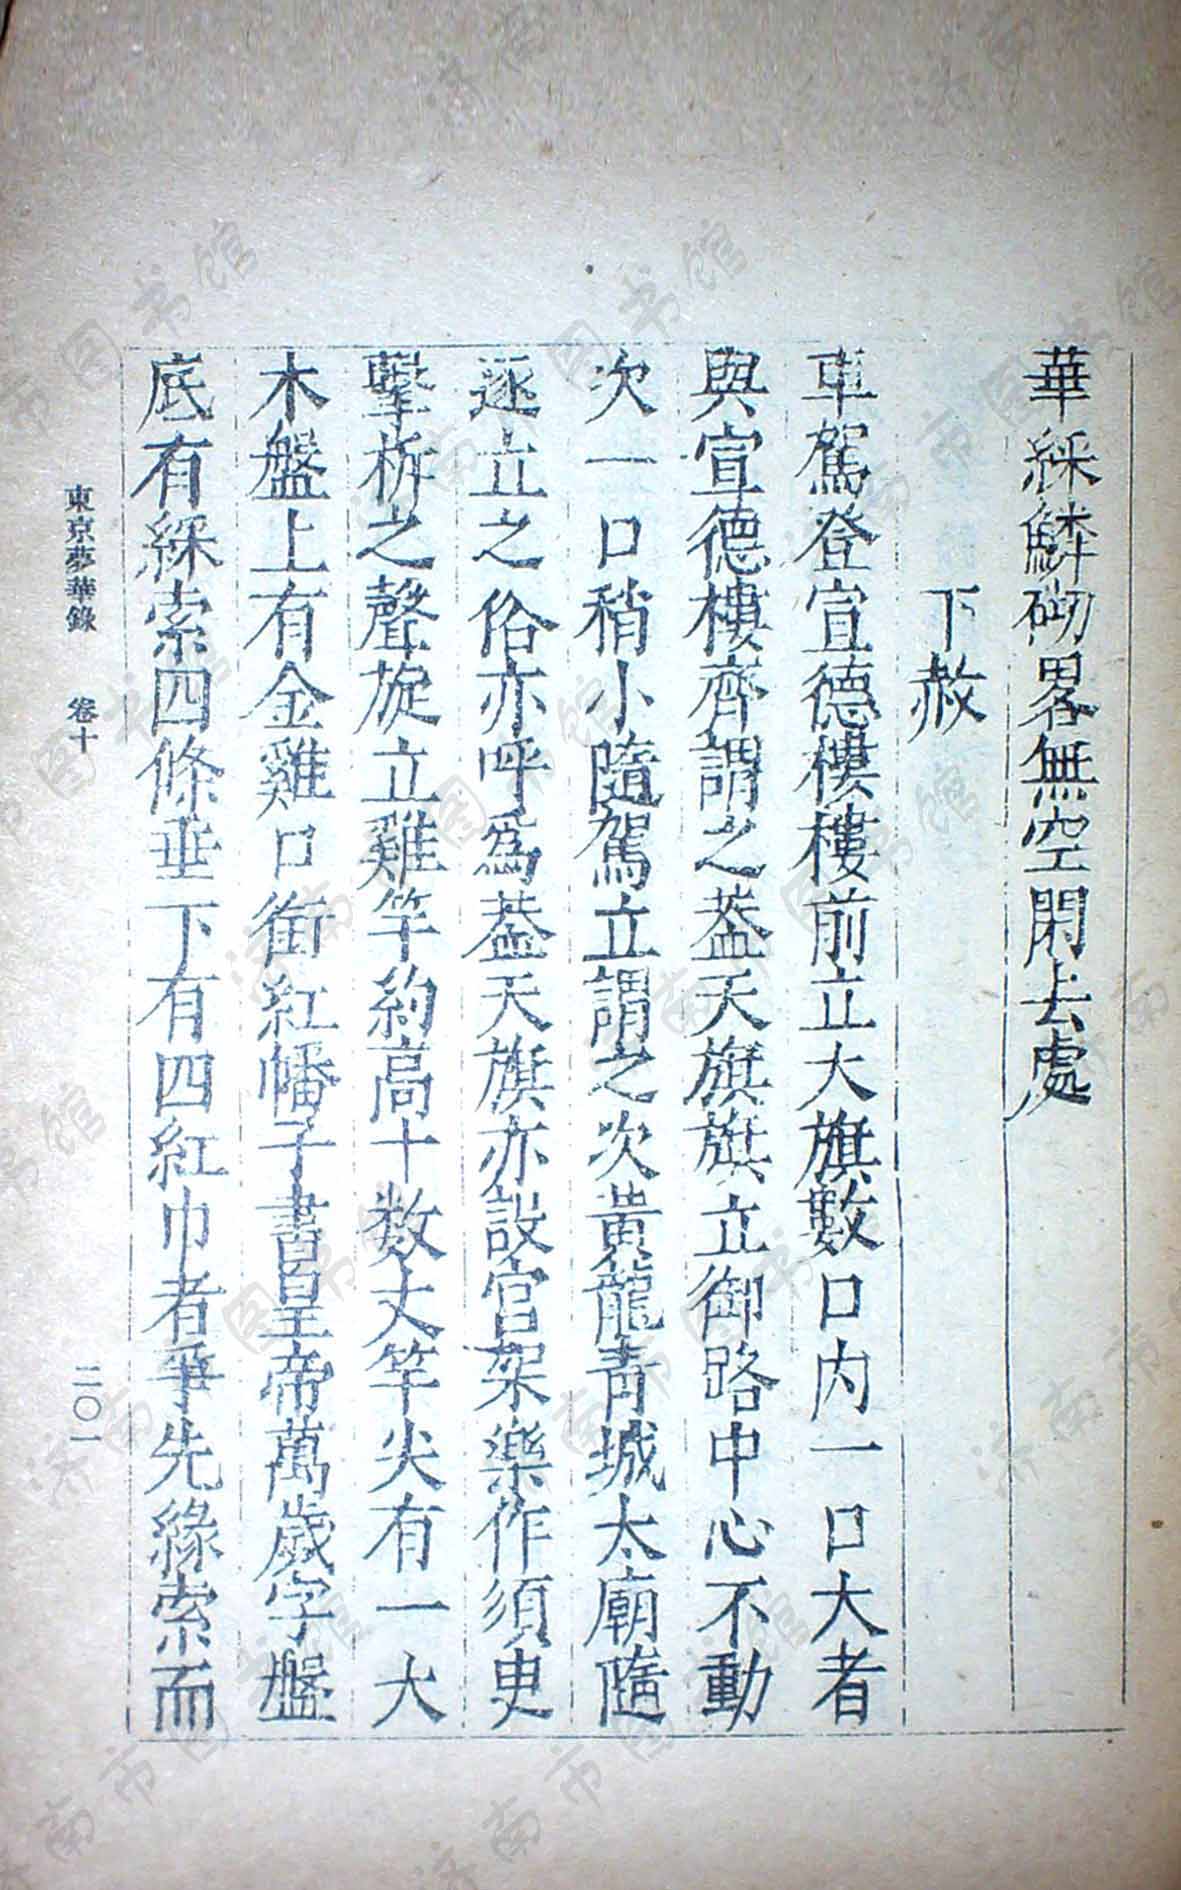 華綵鱗砌畧無空閑去處
下赦
車駕登宣德樓樓前立大旗數口内一口大者
與宣德樓齊謂之葢天旗旗立御路中心不動
次一口稍小隨駕立謂之次黄龍青城太廟隨
逐立之俗亦呼爲葢天旗亦設宫架樂作須臾
擊柝之聲旋立雞竿約高十数丈竿尖有一大
木盤上有金雞口銜紅幡子書皇帝萬歲字盤
底有綵索四條垂下有四紅巾者爭先緣索而
東京夢華錄 卷十 二〇一
济南市图书馆